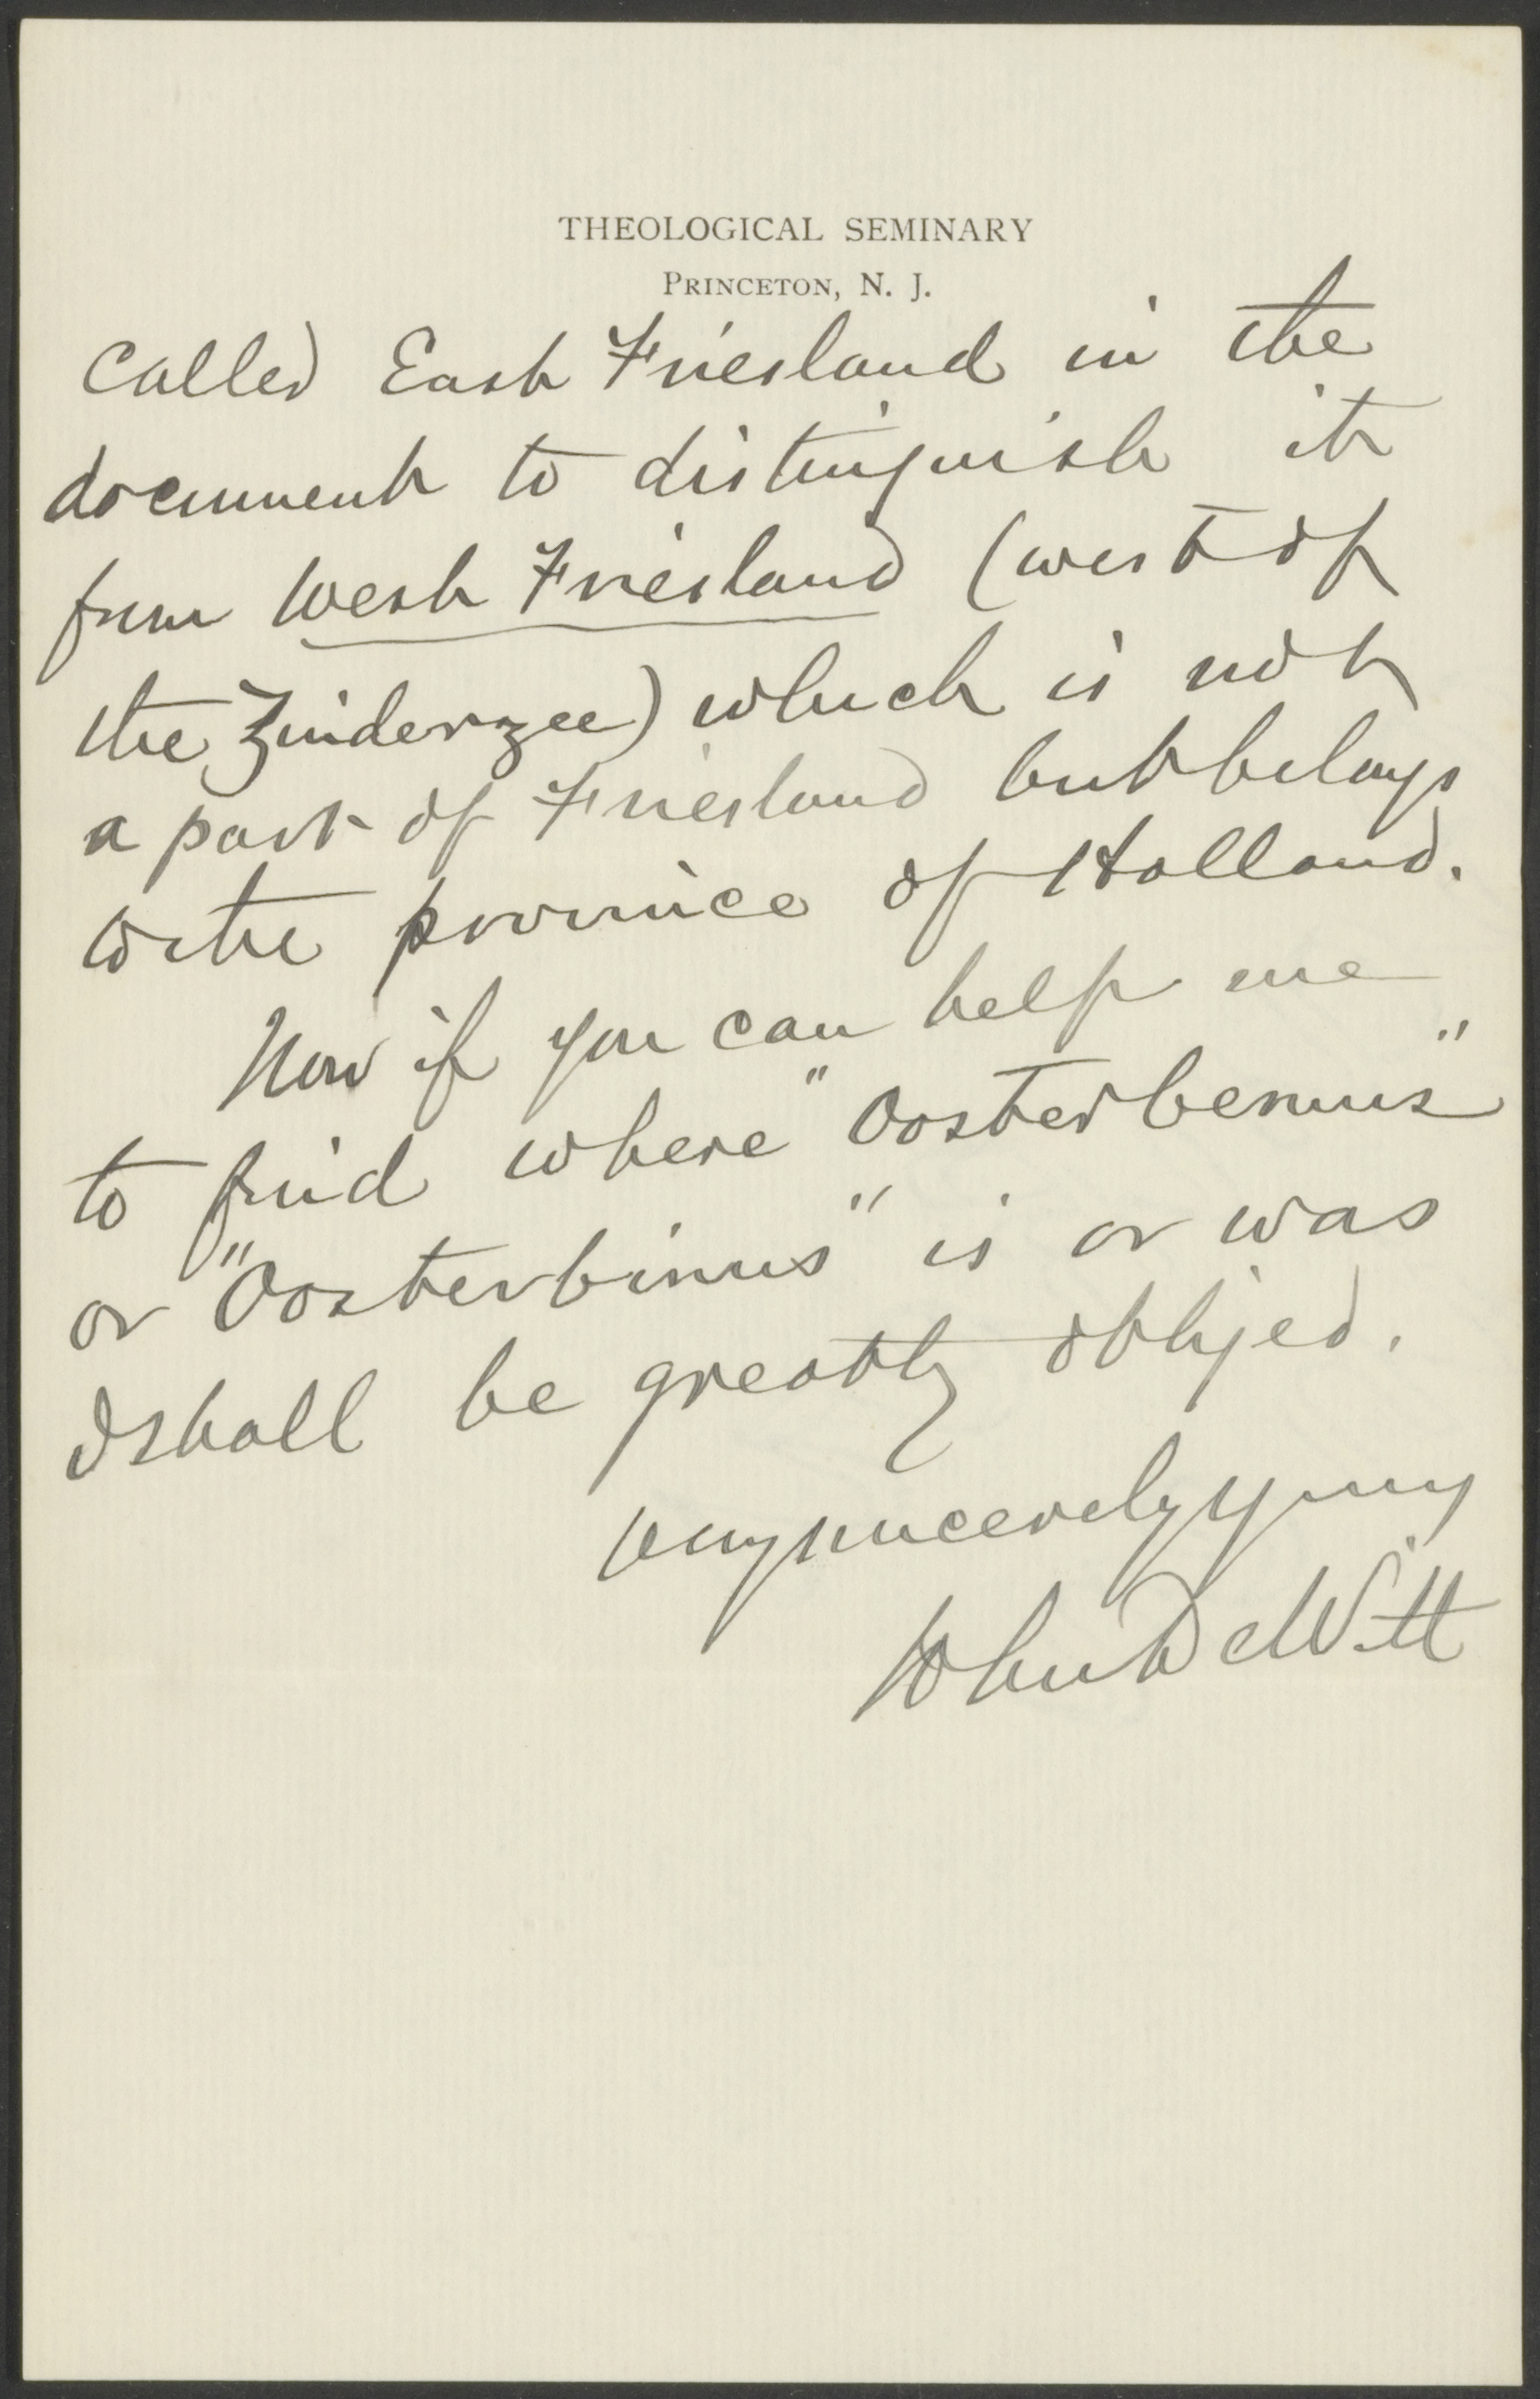 THEOLOGICAL SEMINARY
PRINCETON, N. J.
Called East Friesland in the
document to distinguish it
from West Friesland (west of
the Zuiderzee) which is not
a part of Friesland but belongs
to the province of Holland.
Now if you can help me
to find where "Oosterbemus"
or "Oosterbinus" is or was
I shall be greatly obliged.
Very sincerely yours
John DeWitt